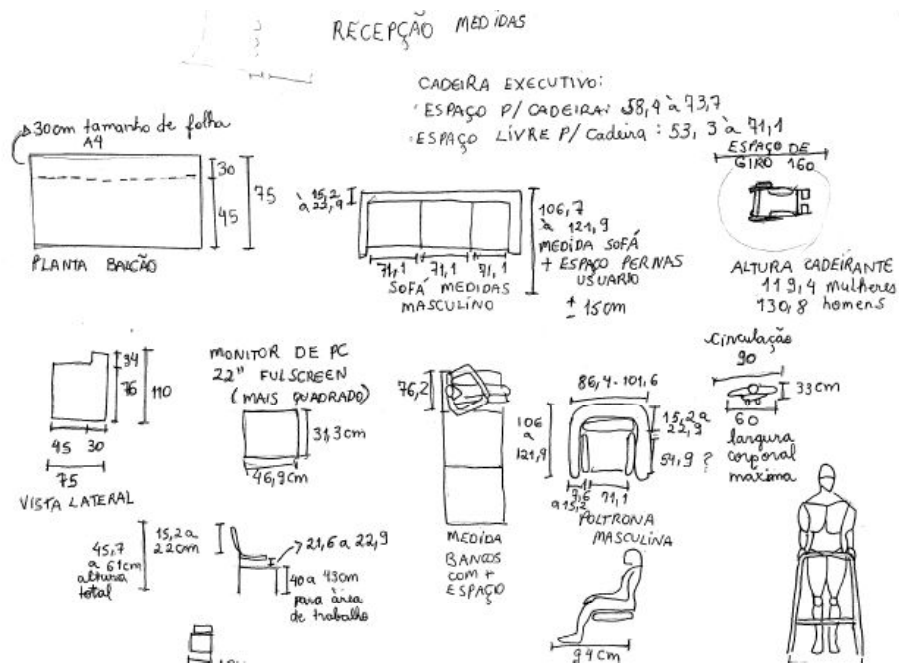 RECEPÇÃO MEDIDAS
CADEIRA EXECUTIVO:
· ESPAÇO P/ CADEIRA: 58,4 à 73,7
· ESPAÇO LIVRE P/ Cadeira : 53,3 à 71,1
30cm tamanho de folha
A4
30
45
75
PLANTA BALCÃO
15,2
à 22,9
71,1 71,1 71,1
SOFÁ MEDIDAS
MASCULINO
106,7
à 121,9
MEDIDA SOFÁ
+ ESPAÇO PERNAS
USUARIO
± 15cm
ESPAÇO DE
GIRO 160
ALTURA CADEIRANTE
119,4 mulheres
130,8 homens
34
76
110
45 30
75
VISTA LATERAL
MONITOR DE PC
22" FULSCREEN
(MAIS QUADRADO)
31,3cm
46,9cm
76,2
MEDIDA
BANCOS
COM +
ESPAÇO
86,4-101,6
106
a
121,9
15,2 a
22,9
54,9 ?
9,6
a 15,2
71,1
POLTRONA
MASCULINA
circulação
90
33cm
60
largura
corporal
máxima
45,7
a 61cm
altura
total
15,2 a
22cm
21,6 a 22,9
40 a 43cm
para área
de trabalho
94cm